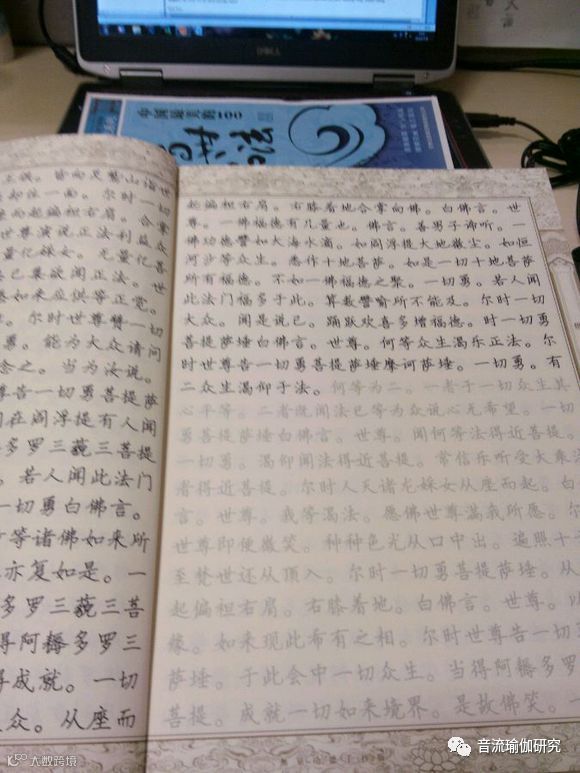 DELL
皆向灵鹫山诣世
却住一面。尔时一切
座而起偏袒右肩。合掌
世尊演说正法利益众
量亿婇女。无量亿菩
已集欲闻正法。世
如来应供等正觉。
尔时世尊赞一切
勇。能为大众请问
念之。当为汝说。
尊告一切勇菩提萨
在阎浮提有人闻
多罗三藐三菩提
。若人闻此法门
一切勇白佛言。
等诸佛如来所
亦复如是。一
多罗三藐三菩
得阿耨多罗三
得成就。一切
众。从座而
起偏袒右肩。右膝着地合掌向佛。白佛言。世
尊。一佛福德有几量也。佛言。善男子谛听。一
佛功德譬如大海水滴。如阎浮提大地微尘。如恒
河沙等众生。悉作十地菩萨。如是一切十地菩萨
所有福德。不如一佛福德之聚。一切勇。若人闻
此法门福多于此。算数譬喻所不能及。尔时一切
大众。闻是说已。踊跃欢喜多增福德。时一切勇
菩提萨埵白佛言。世尊。何等众生渴乐正法。尔
时世尊告一切勇菩提萨埵摩诃萨埵。一切勇。有
二众生渴仰于法。何等为二。一者于一切众生其
心平等。二者既闻法已等为众说心无希望。一切
勇菩提萨埵白佛言。世尊。闻何等法得近菩提。
一切勇。渴仰闻法得近菩提。常信乐听受大乘法
者得近菩提。尔时人天诸龙婇女从座而起。白
言。世尊。我等渴法。愿佛世尊满我所愿。尔
时世尊即便微笑。种种色光从口中出。遍照十
至梵世还从顶入。尔时一切勇菩提萨埵。从
起偏袒右肩。右膝着地。白佛言。世尊。以
缘。如来现此希有之相。尔时世尊告一切
萨埵。于此会中一切众生。当得阿耨多罗
菩提。成就一切如来境界。是故佛笑。一
音流瑜伽研究
大数跨境